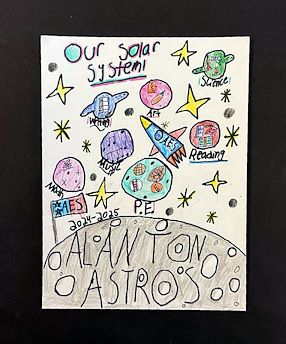 Our Solar
System!
Science
Art
Writing
Music
Reading
Math
P.E.
AES
2024-2025
ALANTON
ASTROS